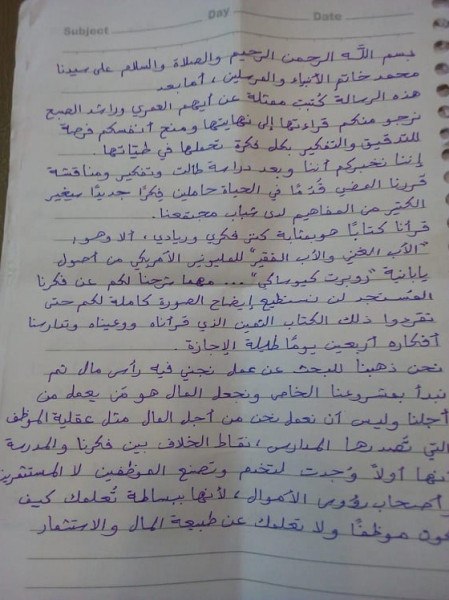 Subject Day Date
بسم الله الرحمن الرحيم والصلاة والسلام على سيدنا
محمد خاتم الأنبياء والمرسلين، أما بعد
هذه الرسالة كُتبت ممثلة عن أيهم العمري ورائد الصبع
نرجو منكم قراءتها إلى نهايتها ومنح أنفسكم فرصة
للتدقيق والتفكير بكل فكرة تحملها في طياتها.
إننا نخبركم أننا وبعد دراسة طالت وتفكير ومناقشة
قررنا المضي قُدُمًا في الحياة حاملين فِكرًا جديدًا سيغير
الكثير من المفاهيم لدى شباب مجتمعنا.
قرأنا كتابًا هو بمثابة كنز فكري وريادي، ألا وهو
"الأب الغني والأب الفقير" للمليونير الأمريكي من أصول
يابانية "روبرت كيوساكي"... مهما شرحنا لكم عن فكرنا
المُستجد لن نستطيع إيضاح الصورة كاملة لكم حتى
تقرءوا ذلك الكتاب الثمين الذي قرأناه ووعيناه وتدارسنا
أفكاره أربعين يومًا طيلة الإجازة.
نحن ذهبنا للبحث عن عمل نجني فيه رأس مال ثم
نبدأ بمشروعنا الخاص ونجعل المال هو مَن يعمل من
أجلنا وليس أن نعمل نحن من أجل المال مثل عقلية الموظف
التي تُصدرها المدارس، نقاط الخلاف بين فكرنا والمدرسة
أنها أولاً وُجدت لتخدم وتصنع الموظفين لا المستثمرين
وأصحاب رؤوس الأموال، لأنها ببساطة تُعلمك كيف
تكون موظفًا ولا تعلمك عن طبيعة المال والاستثمار